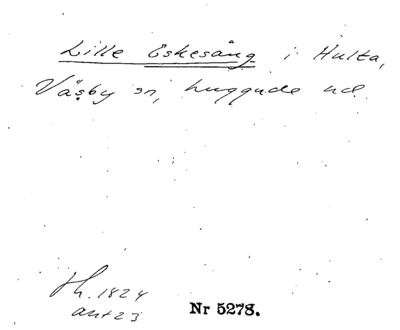 Lille Eskesång i Hulta,
Väsby sn, Luggude hd.
Th. 1824
akt 23
Nr 5278.